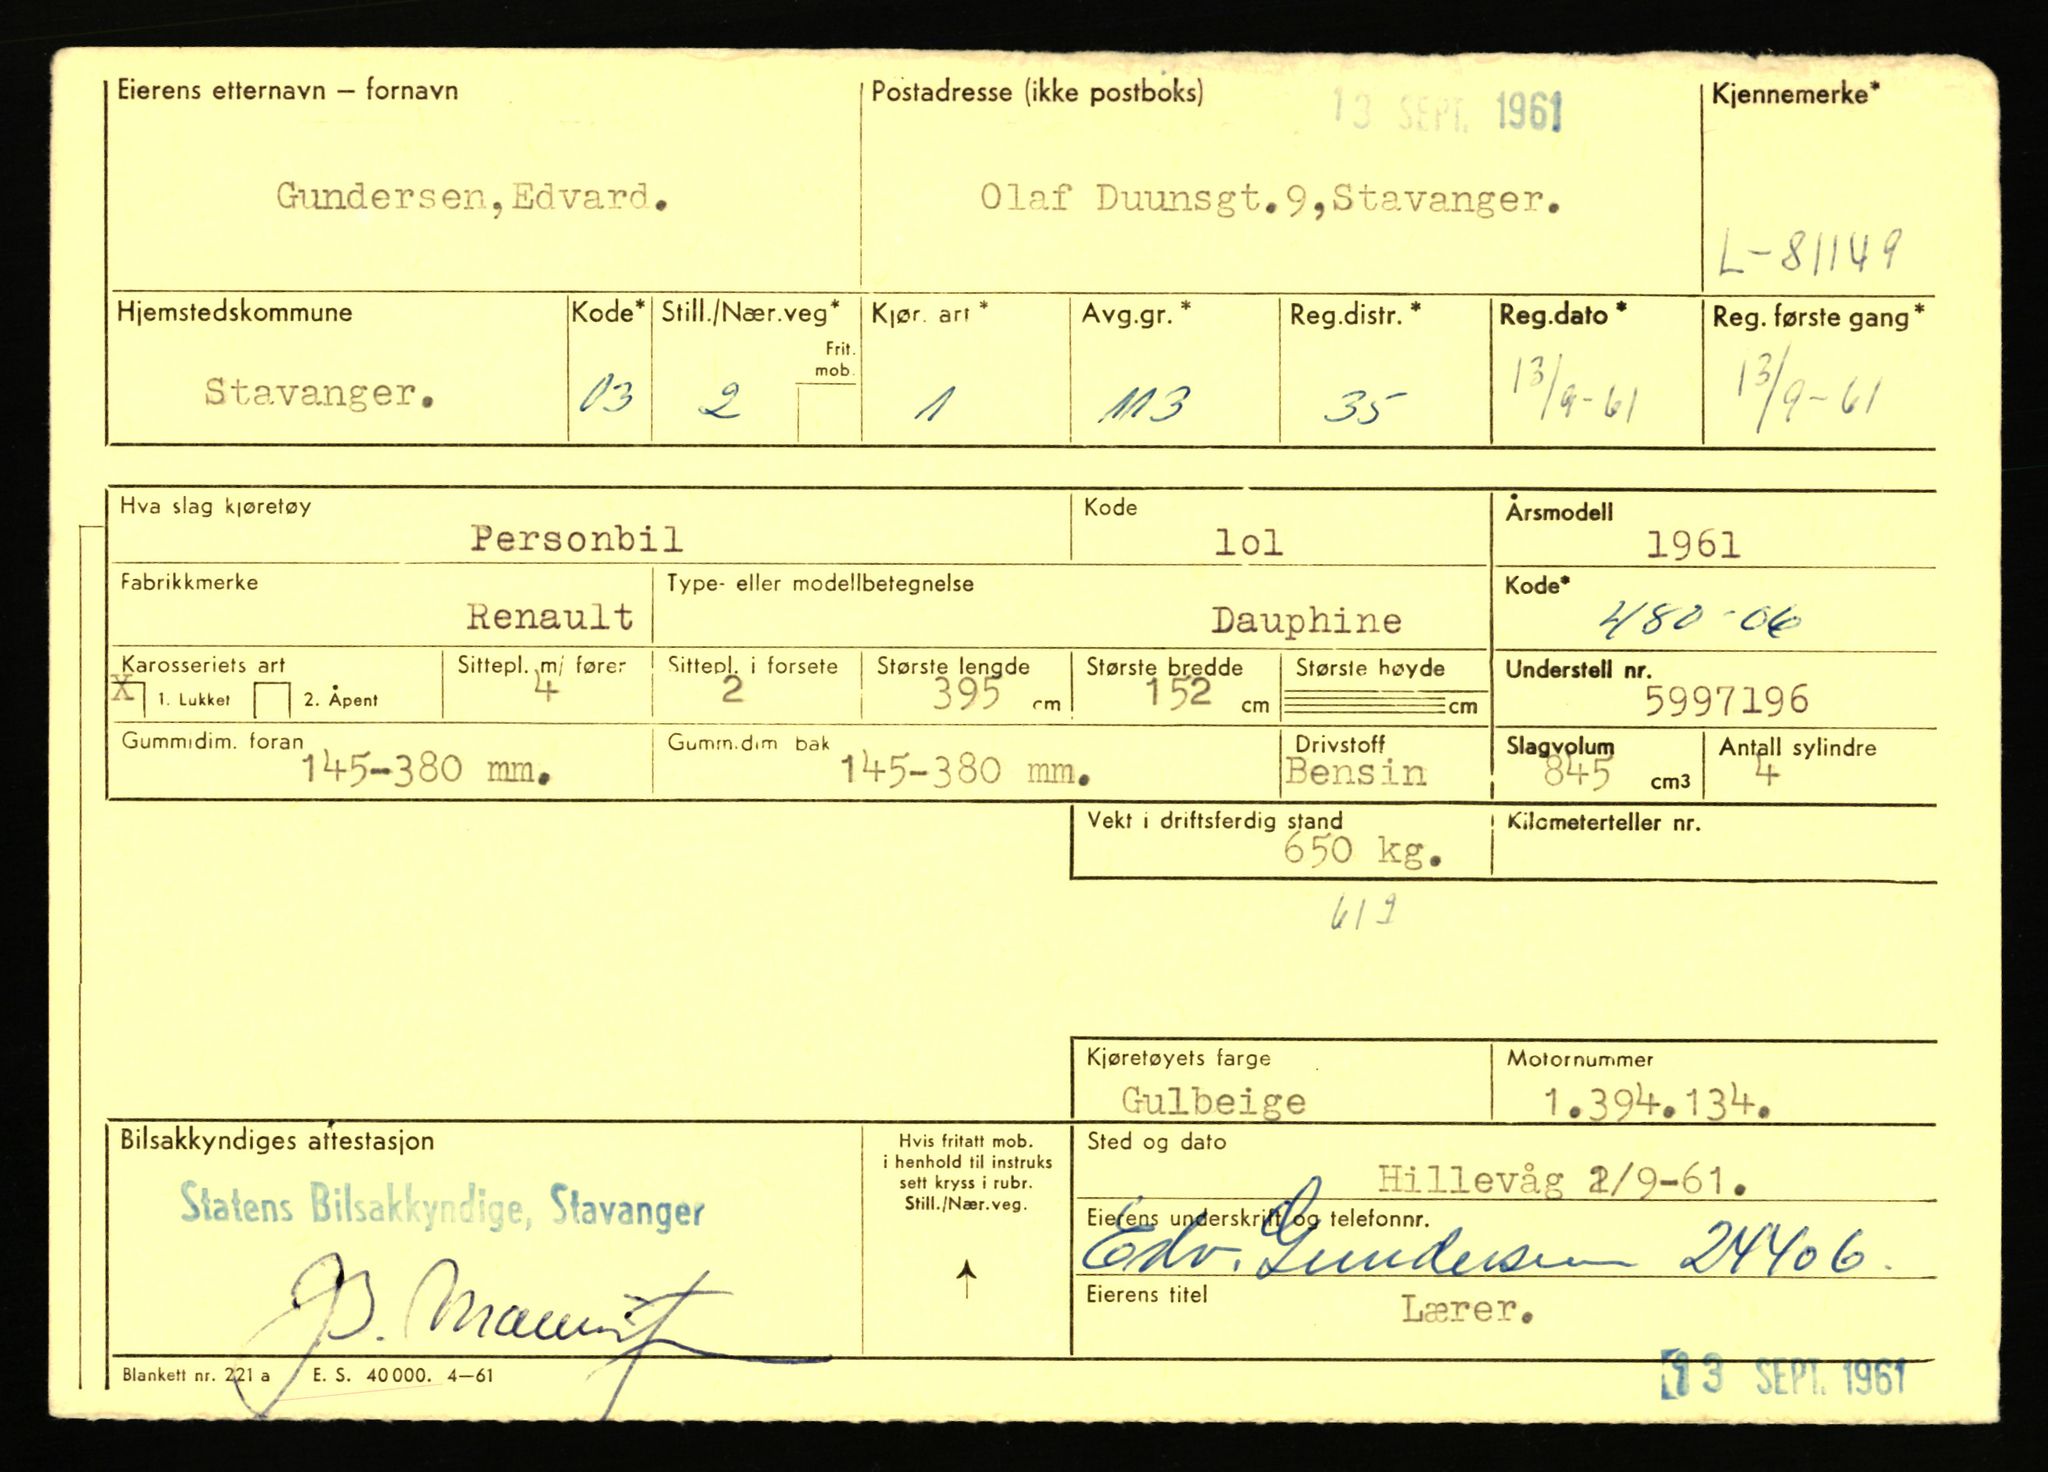 Eierens etternavn – fornavn
Postadresse (ikke postboks)
13 SEPT. 1961
Kjennemerke*
Gundersen,Edvard.
Olaf Duunsgt.9,Stavanger.
L-81149
Hjemstedskommune
Kode*
Still./Nær.veg*
Frit. mob.
Kjør. art*
Avg.gr.*
Reg.distr.*
Reg.dato*
Reg. første gang*
Stavanger.
03
2
1
113
35
13/9-61
13/9-61
Hva slag kjøretøy
Personbil
Kode
lol
Årsmodell
1961
Fabrikkmerke
Renault
Type- eller modellbetegnelse
Dauphine
Kode*
480-06
Karosseriets art
X 1. Lukket 2. Åpent
Sittepl. m/ fører
4
Sittepl. i forsete
2
Største lengde
395 cm
Største bredde
152 cm
Største høyde
cm
Understell nr.
5997196
Gummidim. foran
145-380 mm.
Gummidim bak
145-380 mm.
Drivstoff
Bensin
Slagvolum
845 cm3
Antall sylindre
4
Vekt i driftsferdig stand
650 kg.
Kilometerteller nr.
619
Kjøretøyets farge
Gulbeige
Motornummer
1.394.134.
Bilsakkyndiges attestasjon
Statens Bilsakkyndige, Stavanger
Hvis fritatt mob.
i henhold til instruks
sett kryss i rubr.
Still./Nær.veg.
Sted og dato
Hillevåg 12/9-61.
Eierens underskrift og telefonnr.
Edv. Gundersen 24406.
Eierens titel
Lærer.
Blankett nr. 221 a E. S. 40 000. 4–61
13 SEPT. 1961